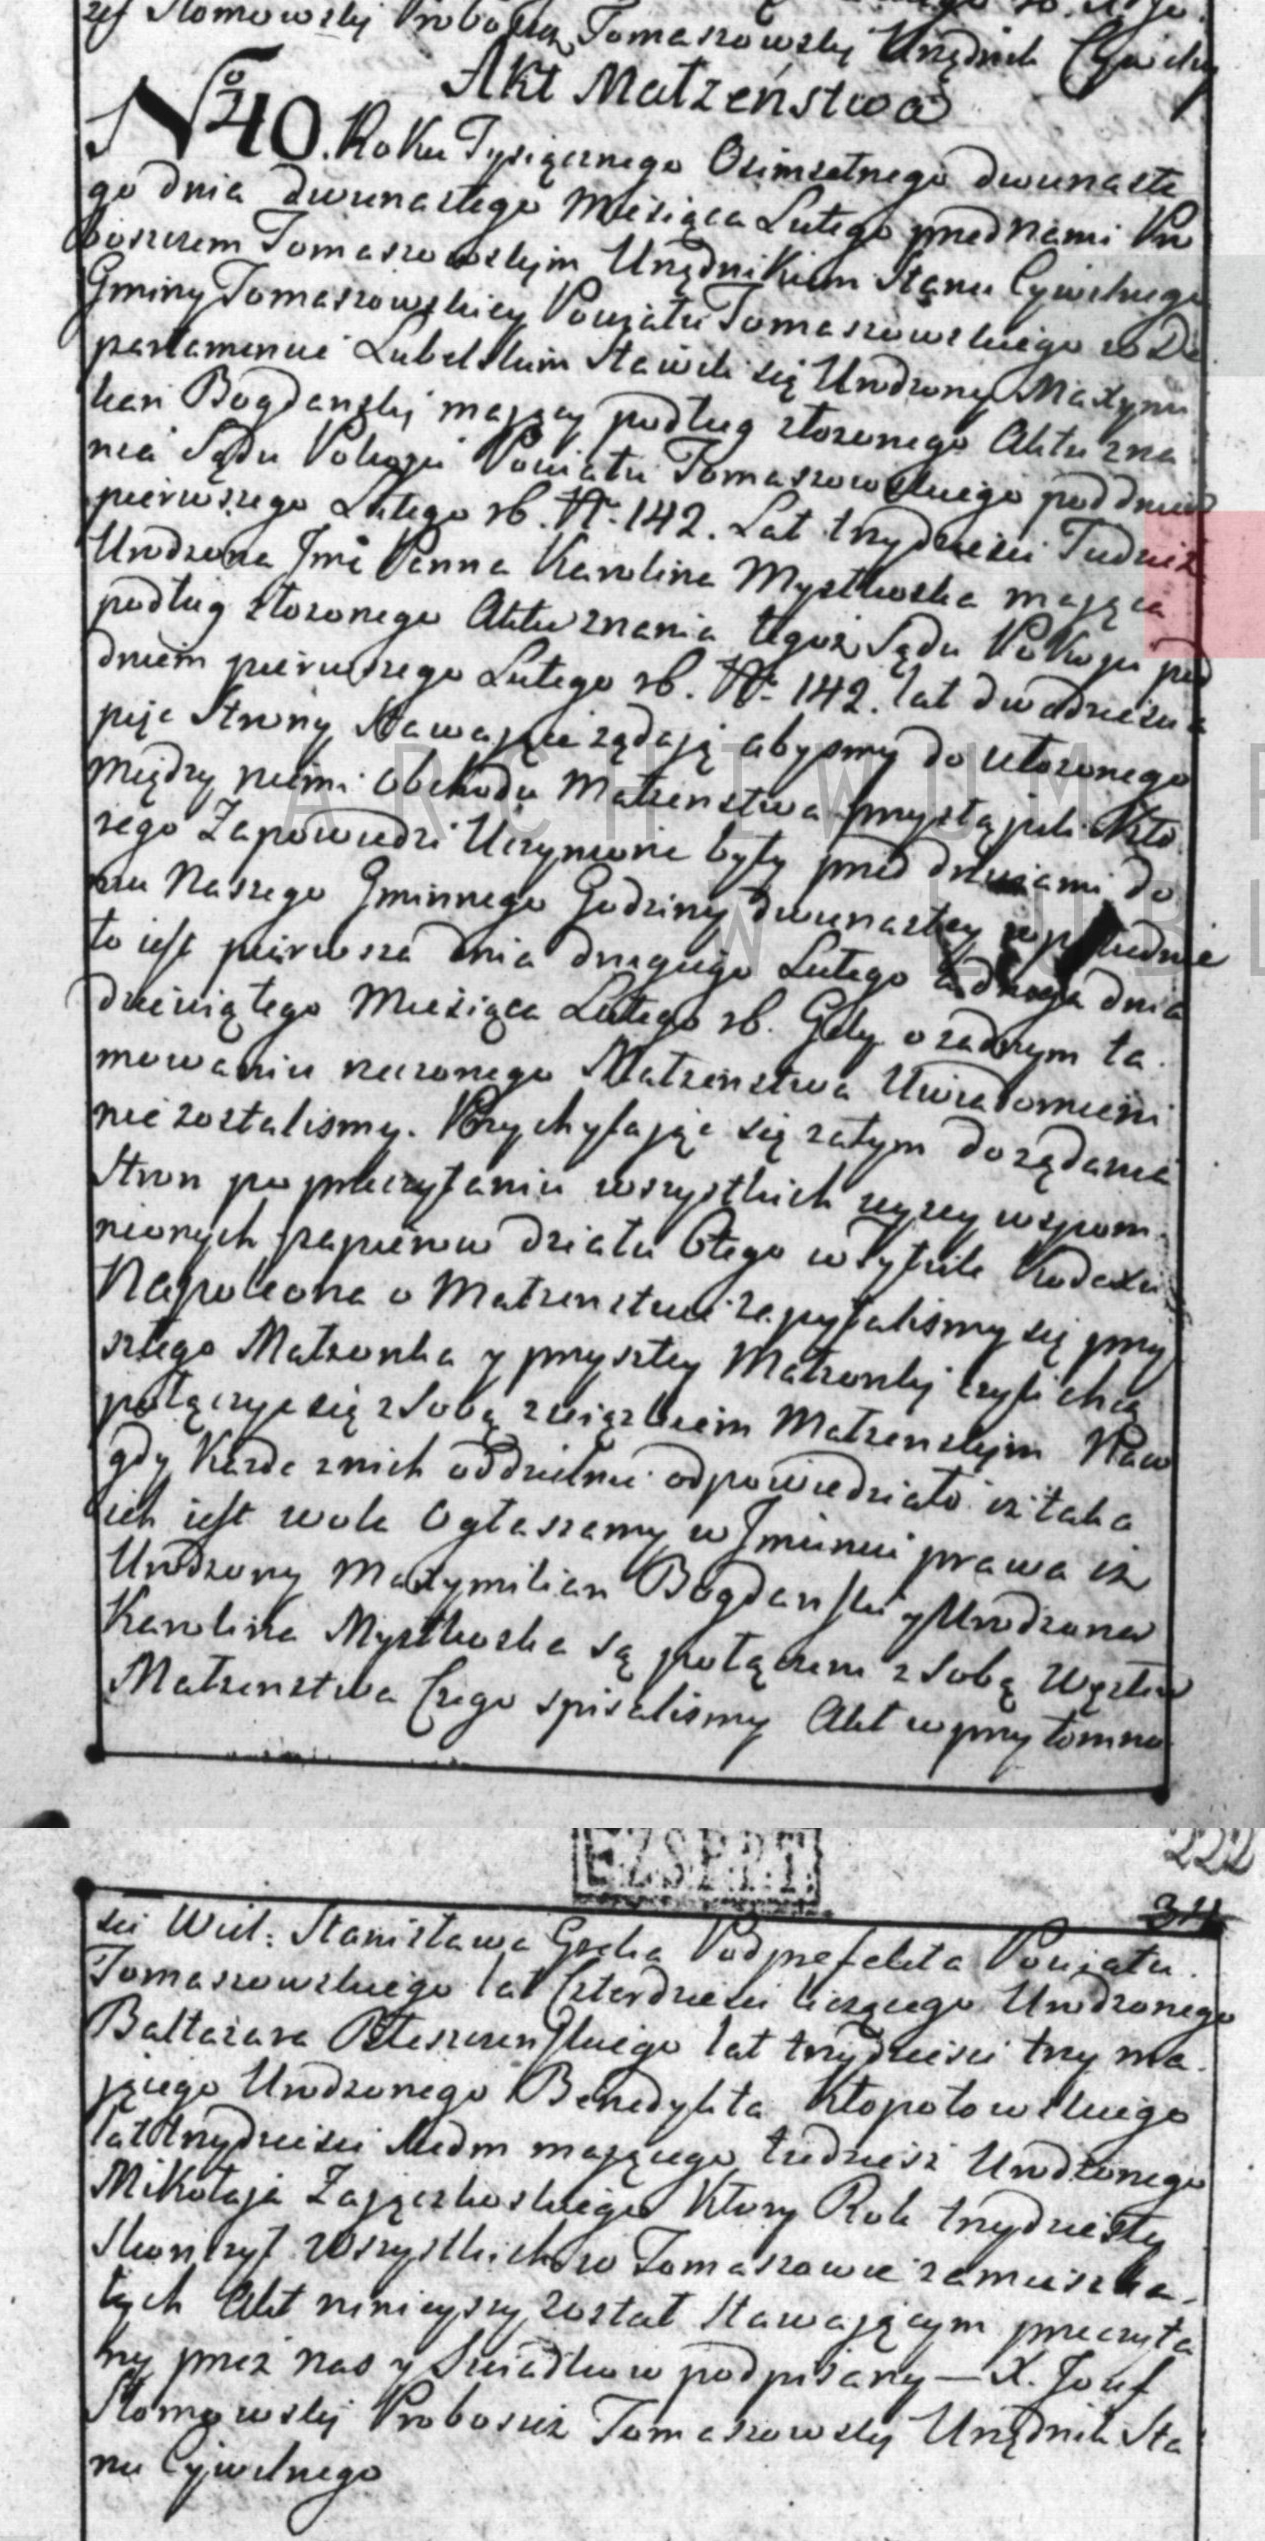 zef Słomowskij Probosz Tomaszowsky Urzędnik Cywilny
Akt Małżeństwa
No 40. Roku Tysiącznego Osimsetnego dwunaste
go dnia dwunastego Miesiąca Lutego przed Nami Pro
boszczem Tomaszowskim Urzędnikiem Stanu Cywilnego
Gminy Tomaszowskiey Powiatu Tomaszowskiego w De
partamencie Lubelskim Stawili się Urodzony Maxymi
lian Bogdanskij maiący podług złozonego Aktu zna
nia Sądu Pokoju Powiatu Tomaszowskiego pod dniem
pierwszego Lutego rb. N. 142. Lat trzydziesci Tudzież
Urodzona Jmć Panna Karolina Mystkoska maiąca
podług złozonego Aktu znania tegoż Sądu Pokoju pod
dniem pierwszego Lutego rb. N. 142. lat dwadziescia
Strony Stawaiące żądają abysmy do ułozonego
między niemi obchodu Małzenstwa przystąpili Któ
rego Zapowiedzi Uczynione były przed drzwiami do
mu Naszego Gminnego Godziny dwunastey w południe
to iest pierwsza dnia drugiego Lutego a druga dnia
dziewiątego Miesiąca Lutego rb. Gdy o zadnym ta
mowaniu rzeczonego Małzenstwa Uwiadomieni
nie zostalismy. Przychylając się zatym do ządania
Stron po przeczytaniu wszystkich wyzey wspom
nionych papierow działu 6tego w tytule Kodexu
Napoleona o Małzenstwie zapytalismy się przy
szłego Małzonka y przyszłey Małzonki czyli chcą
połączyc się z sobą związkiem Małzenskim Na co
gdy Kazde z nich oddzielnie odpowiedziało iz taka
ich iest wola Ogłaszamy w Jmieniu prawa iz
Urodzony Maxymilian Bogdanski y Urodzona
Karolina Mystkoska są połączeni z sobą Węzłem
Małzenstwa Czego spisalismy Akt w przytomno
222
34
sci Wiel: Stanisława Podprefekta Powiatu
Tomaszowskiego lat Czterdziesci liczącego Urodzonego
Baltazara Pleszczenskiego lat trzydziesci trzy ma
jącego Urodzonego Benedykta Kłopotowskiego
lat trzydziesci siedm mającego tudziesz Urodzonego
Mikołaja Zajączkoskiego Ktory Rok trzydziesty
skonczył wszystkich w Tomaszowie zamieszka
łych Akt niniejszy został Stawającym przeczyta
ny przez nas y Swiadkow podpisany — X. Jozef
Słomowskij Proboszcz Tomaszowsky Urzędnik Sta
nu Cywilnego